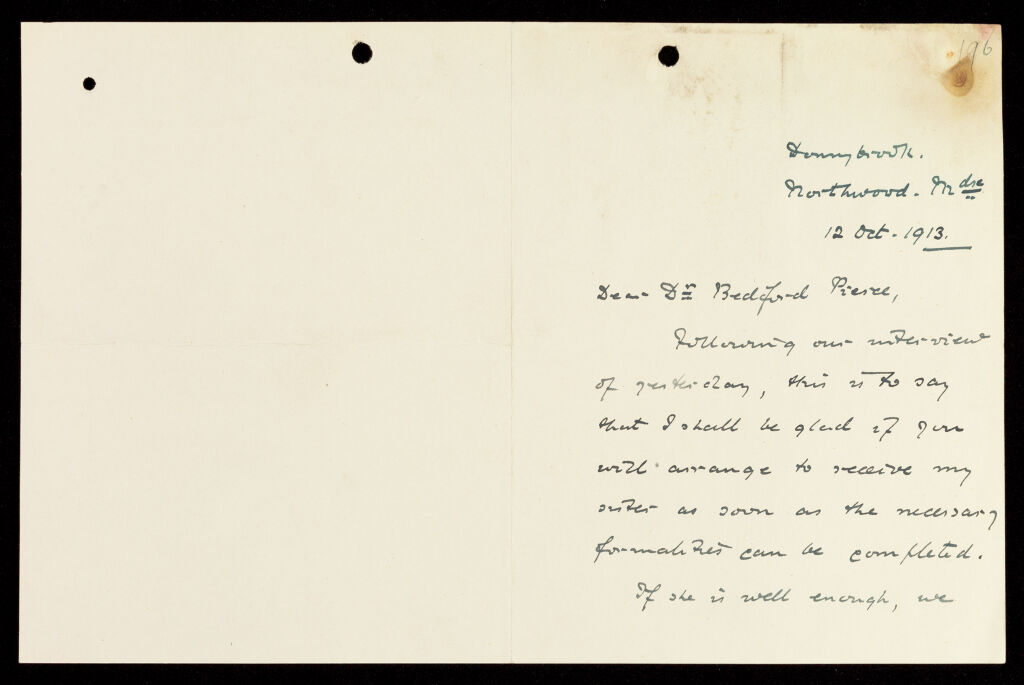 196
Donnybrook.
Northwood. Mdse
12 Oct. 1913.
Dear Dr Bedford Pierce,
Following our interview
of yesterday, this is to say
that I shall be glad if you
will arrange to receive my
sister as soon as the necessary
formalities can be completed.
If she is well enough, we